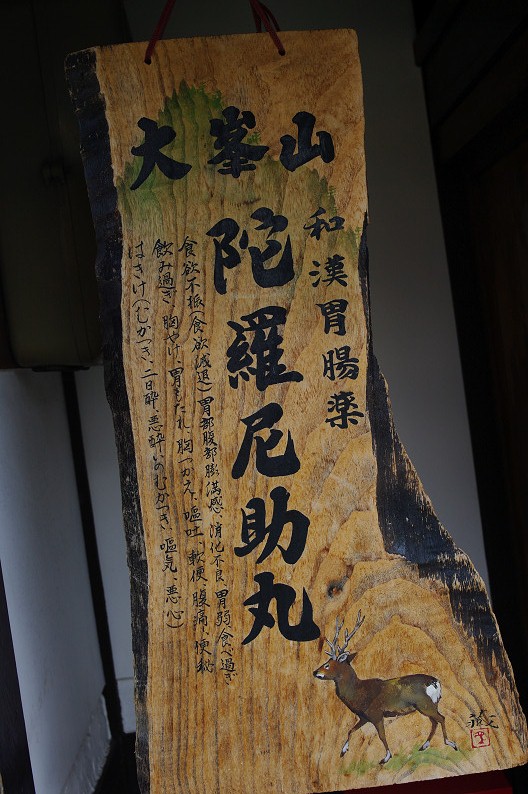 大峯山
和漢胃腸薬
陀羅尼助丸
食欲不振(食欲減退)胃部腹部膨満感、消化不良、胃弱、食べ過ぎ
飲み過ぎ、胸やけ、胃もたれ、胸つかえ、嘔吐、軟便、腹痛、便秘
はきけ(むかつき、二日酔、悪酔いのむかつき、嘔気、悪心)
蔵